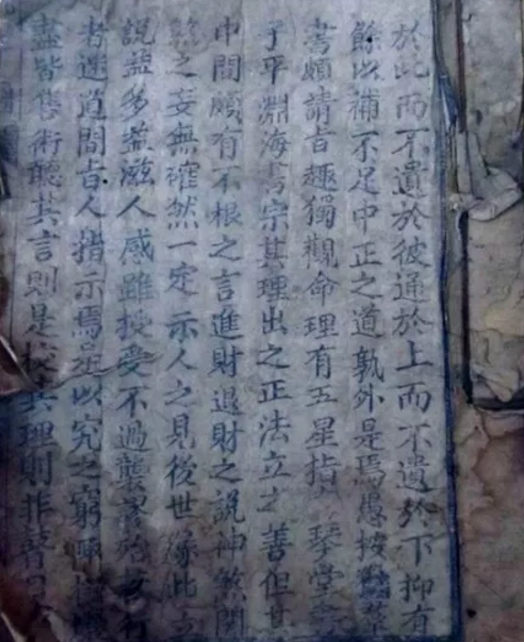 於此而不遺於彼通於上而不遺於下抑有
餘以補不足中正之道孰外是焉愚按
書頗請旨趣獨觀命理有五星指 琴堂
子平淵海書宗其理出之正法立才善但其
中間頗有不根之言進財退財之說神煞閒
之妄無確然一定示人之見後世緣此
說益多益滋人惑雖授受不過襲
者邂逅間旨人指示焉 以究之窮
盡皆售術聽其言則是 其理則非